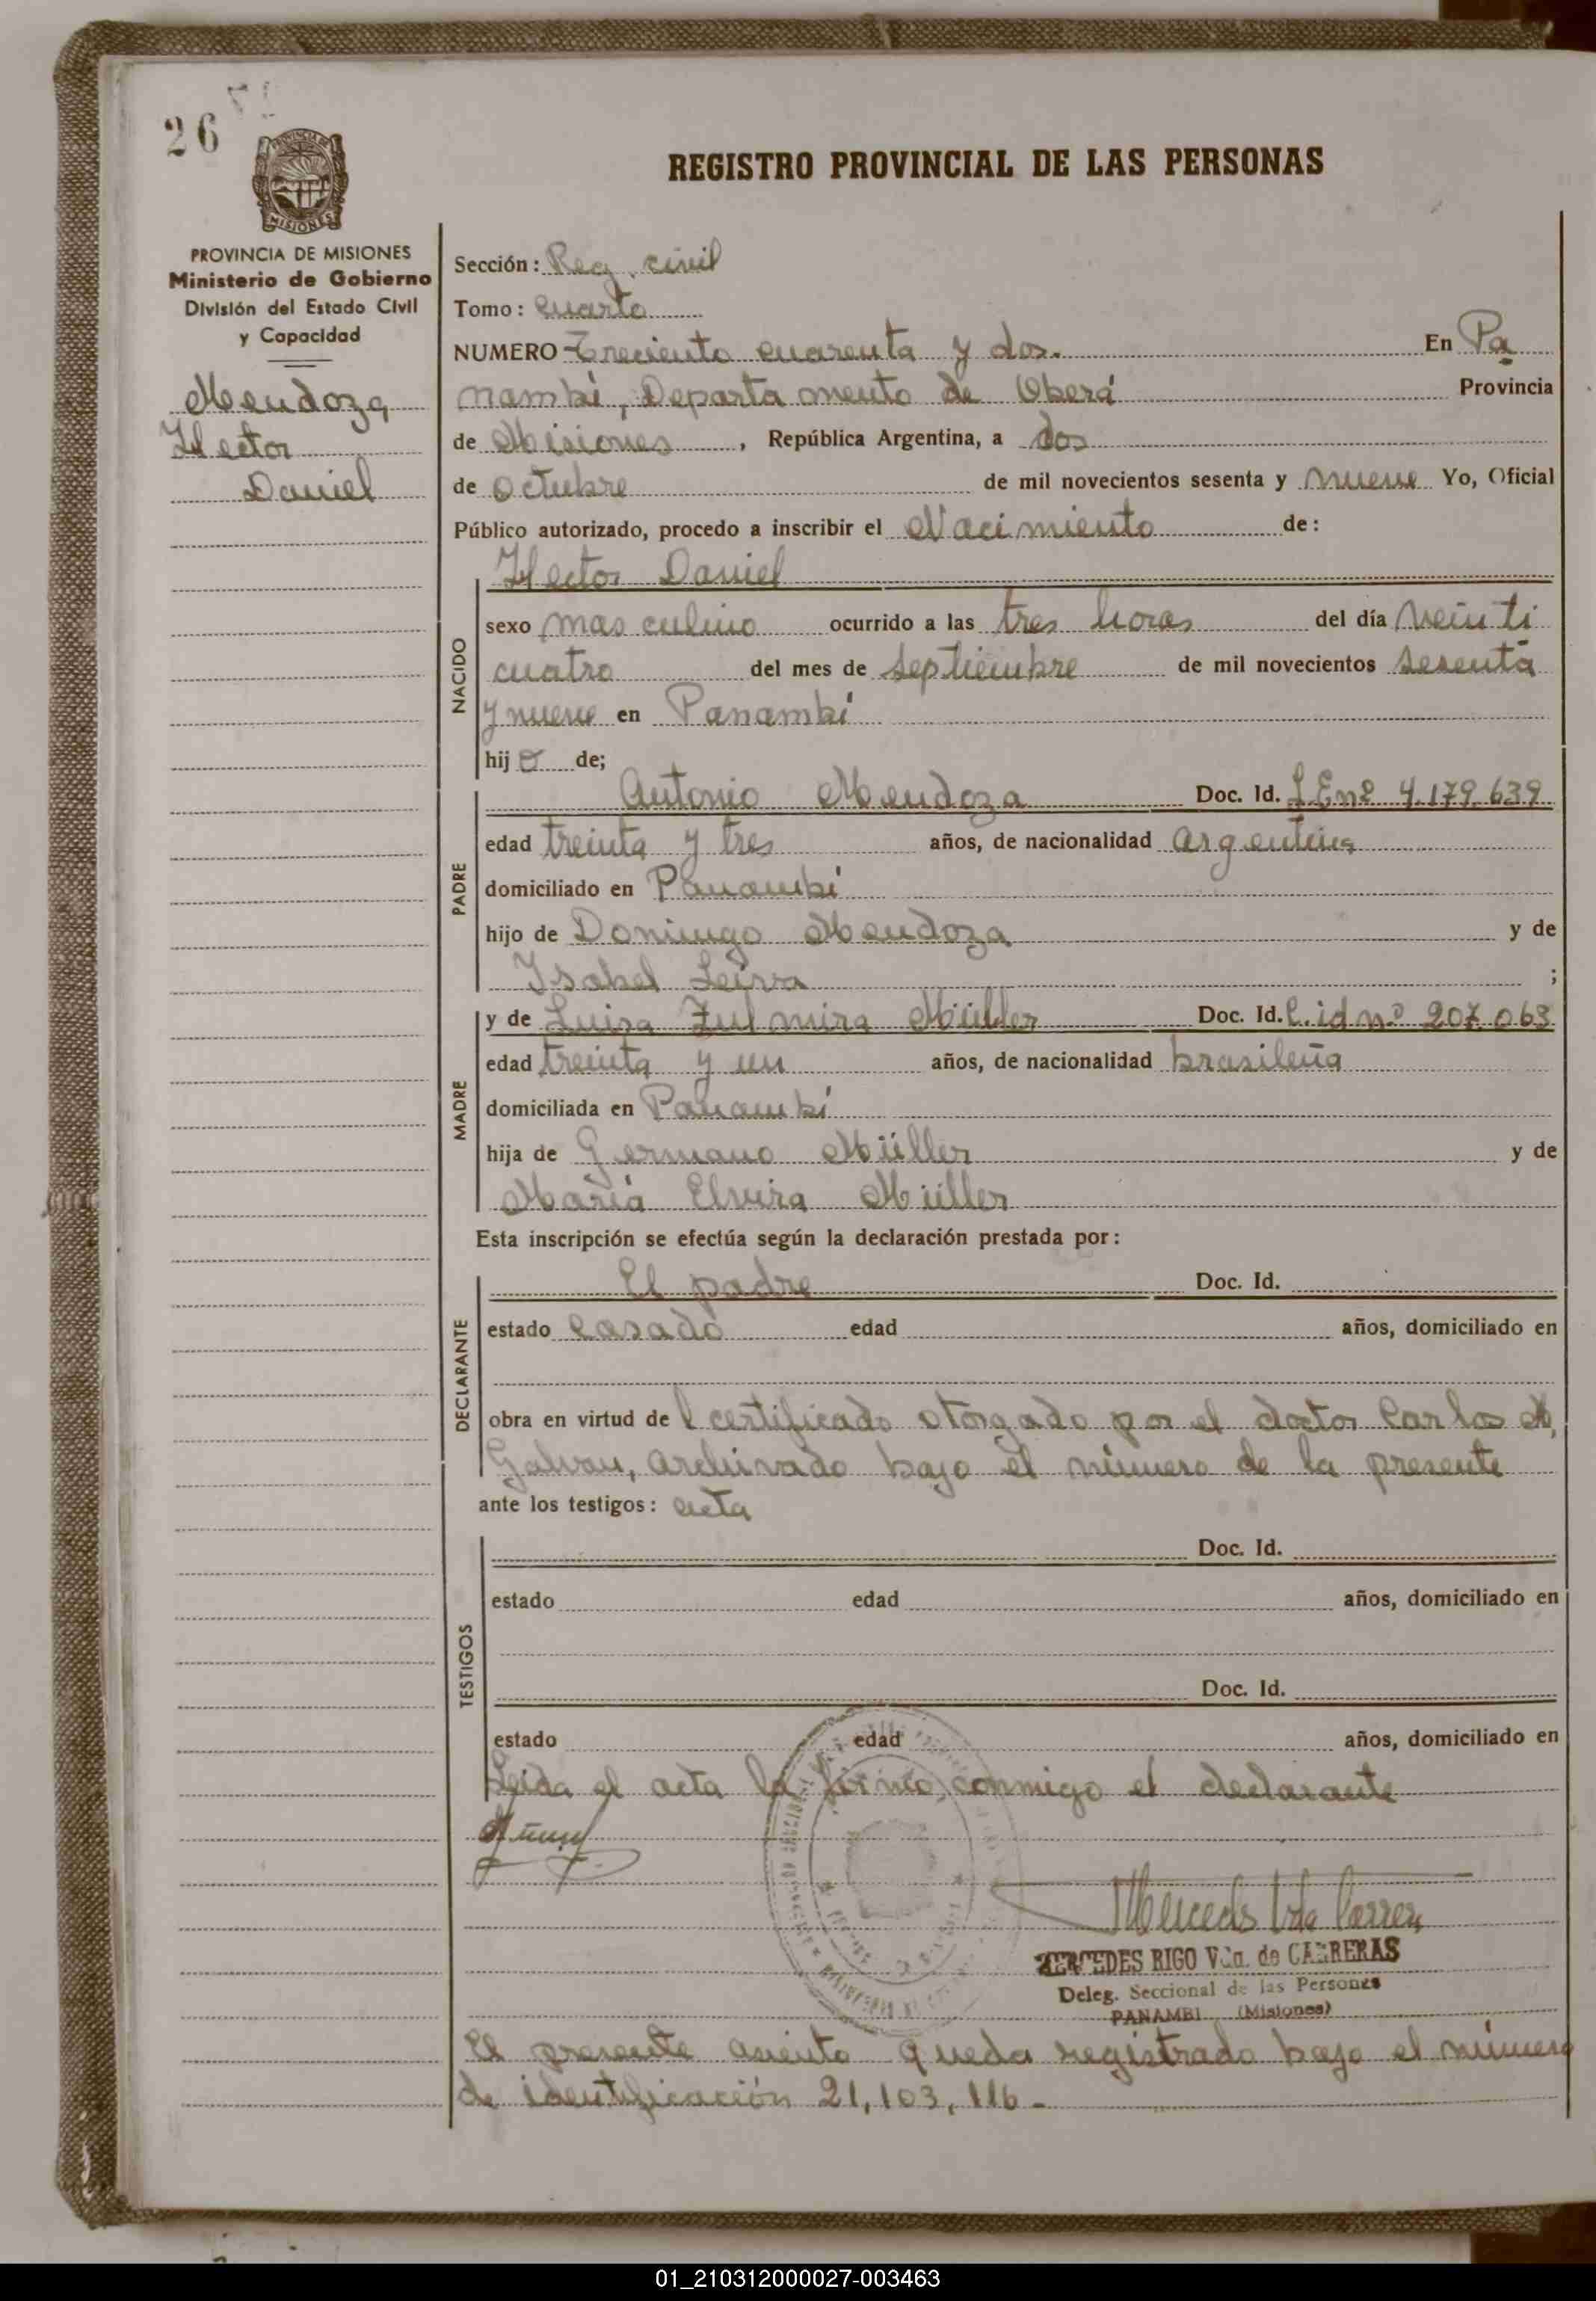 26
REGISTRO PROVINCIAL DE LAS PERSONAS
PROVINCIA DE MISIONES
Ministerio de Gobierno
División del Estado Civil
y Capacidad
Mendoza
Hector
Daniel
Sección: Reg. civil
Tomo: Cuarto
NUMERO Treciento cuarenta y dos. En Pa
nambí, Departamento de Oberá Provincia
de Misiones, República Argentina, a dos
de Octubre de mil novecientos sesenta y nueve Yo, Oficial
Público autorizado, procedo a inscribir el Nacimiento de:
Hector Daniel
NACIDO
sexo masculino ocurrido a las tres horas del día veinti
cuatro del mes de septiembre de mil novecientos sesenta
y nueve en Panambí
hijo de;
PADRE
Antonio Mendoza Doc. Id. L.E nº 4.179.639
edad treinta y tres años, de nacionalidad argentina
domiciliado en Panambí
hijo de Domingo Mendoza y de
Isabel Leiva ;
MADRE
y de Luisa Zulmira Müller Doc. Id. C.id nº 207.063
edad treinta y un años, de nacionalidad brasileña
domiciliada en Panambí
hija de Germano Müller y de
María Elvira Müller
Esta inscripción se efectúa según la declaración prestada por:
DECLARANTE
El padre Doc. Id.
estado Casado edad años, domiciliado en
obra en virtud de l certificado otorgado por el doctor Carlos M.
Galvan, archivado bajo el número de la presente
ante los testigos: acta
TESTIGOS
Doc. Id.
estado edad años, domiciliado en
Doc. Id.
estado edad años, domiciliado en
Leida el acta la firmó conmigo el declarante
Mercedes Vda Carreras
MERCEDES RIGO Vda. de CARRERAS
Deleg. Seccional de las Personas
PANAMBI (Misiones)
El presente asiento queda registrado bajo el número
de identificación 21,103,116.-
01_210312000027-003463